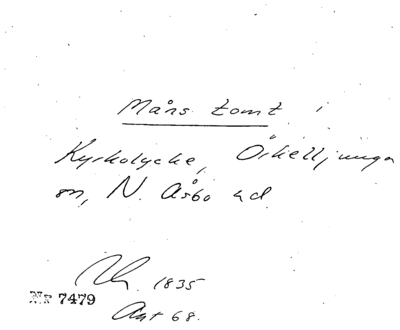 Måns tomt
Kyrkolycke, Örkelljunga
sn, N. Åsbo hd
1835
Nr 7479
Akt 68.